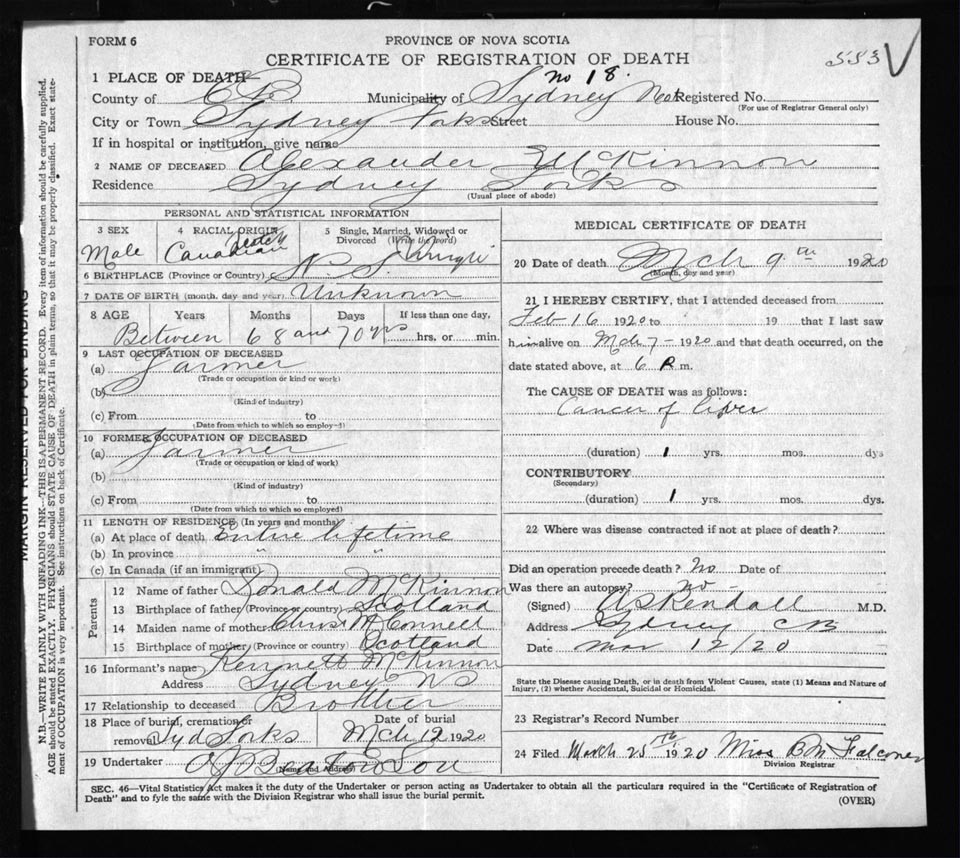 FORM 6
PROVINCE OF NOVA SCOTIA
CERTIFICATE OF REGISTRATION OF DEATH
583 V
1 PLACE OF DEATH
No 18.
County of C B. Municipality of Sydney Registered No.
(For use of Registrar General only)
City or Town Sydney Forks Street House No.
If in hospital or institution, give name
2 NAME OF DECEASED Alexander McKinnon
Residence Sydney Forks
(Usual place of abode)
PERSONAL AND STATISTICAL INFORMATION
3 SEX Male
4 RACIAL ORIGIN Canadian
5 Single, Married, Widowed or Divorced (Write the word)
6 BIRTHPLACE (Province or Country) N. S.
7 DATE OF BIRTH (month, day and year) Unknown
8 AGE Years Months Days If less than one day,
Between 68 and 70 yrs hrs. or min.
9 LAST OCCUPATION OF DECEASED
(a) Farmer
(Trade or occupation or kind or work)
(b)
(Kind of industry)
(c) From to
(Date from which to which so employed)
10 FORMER OCCUPATION OF DECEASED
(a) Farmer
(Trade or occupation or kind of work)
(b)
(Kind of industry)
(c) From to
(Date from which to which so employed)
11 LENGTH OF RESIDENCE (In years and months)
(a) At place of death Entire lifetime
(b) In province " "
(c) In Canada (if an immigrant)
Parents
12 Name of father Donald McKinnon
13 Birthplace of father (Province or country) Scotland
14 Maiden name of mother McConnell
15 Birthplace of mother (Province or country) Scotland
16 Informant's name Kennett McKinnon
Address Sydney NS
17 Relationship to deceased Brother
18 Place of burial, cremation or removal Syd Forks
Date of burial Mch 12 1920
19 Undertaker A J Beaton & Son
(Name and Address)
MEDICAL CERTIFICATE OF DEATH
20 Date of death Mch 9th 1920
(Month, day and year)
21 I HEREBY CERTIFY, that I attended deceased from
Feb 16 1920 to 19 that I last saw
him alive on Mch 7 - 1920 and that death occurred, on the
date stated above, at 6 P m.
The CAUSE OF DEATH was as follows:
Cancer of liver
(duration) 1 yrs. mos. dys
CONTRIBUTORY
(Secondary)
(duration) 1 yrs. mos. dys.
22 Where was disease contracted if not at place of death?
Did an operation precede death? No Date of
Was there an autopsy? No -
(Signed) A S Kendall M.D.
Address Sydney CB
Date Mar 12/20
State the Disease causing Death, or in death from Violent Causes, state (1) Means and Nature of
Injury, (2) whether Accidental, Suicidal or Homicidal.
23 Registrar's Record Number
24 Filed March 25th 1920 Miss B M Falconer
Division Registrar
SEC. 46—Vital Statistics Act makes it the duty of the Undertaker or person acting as Undertaker to obtain all the particulars required in the "Certificate of Registration of
Death" and to fyle the same with the Division Registrar who shall issue the burial permit.
(OVER)
MARGIN RESERVED FOR BINDING
N.B.—WRITE PLAINLY WITH UNFADING INK—THIS IS A PERMANENT RECORD. Every item of information should be carefully supplied.
AGE should be stated EXACTLY. PHYSICIANS should STATE CAUSE OF DEATH in plain terms, so that it may be properly classified. Exact state-
ment of OCCUPATION is very important. See instructions on back of Certificate.